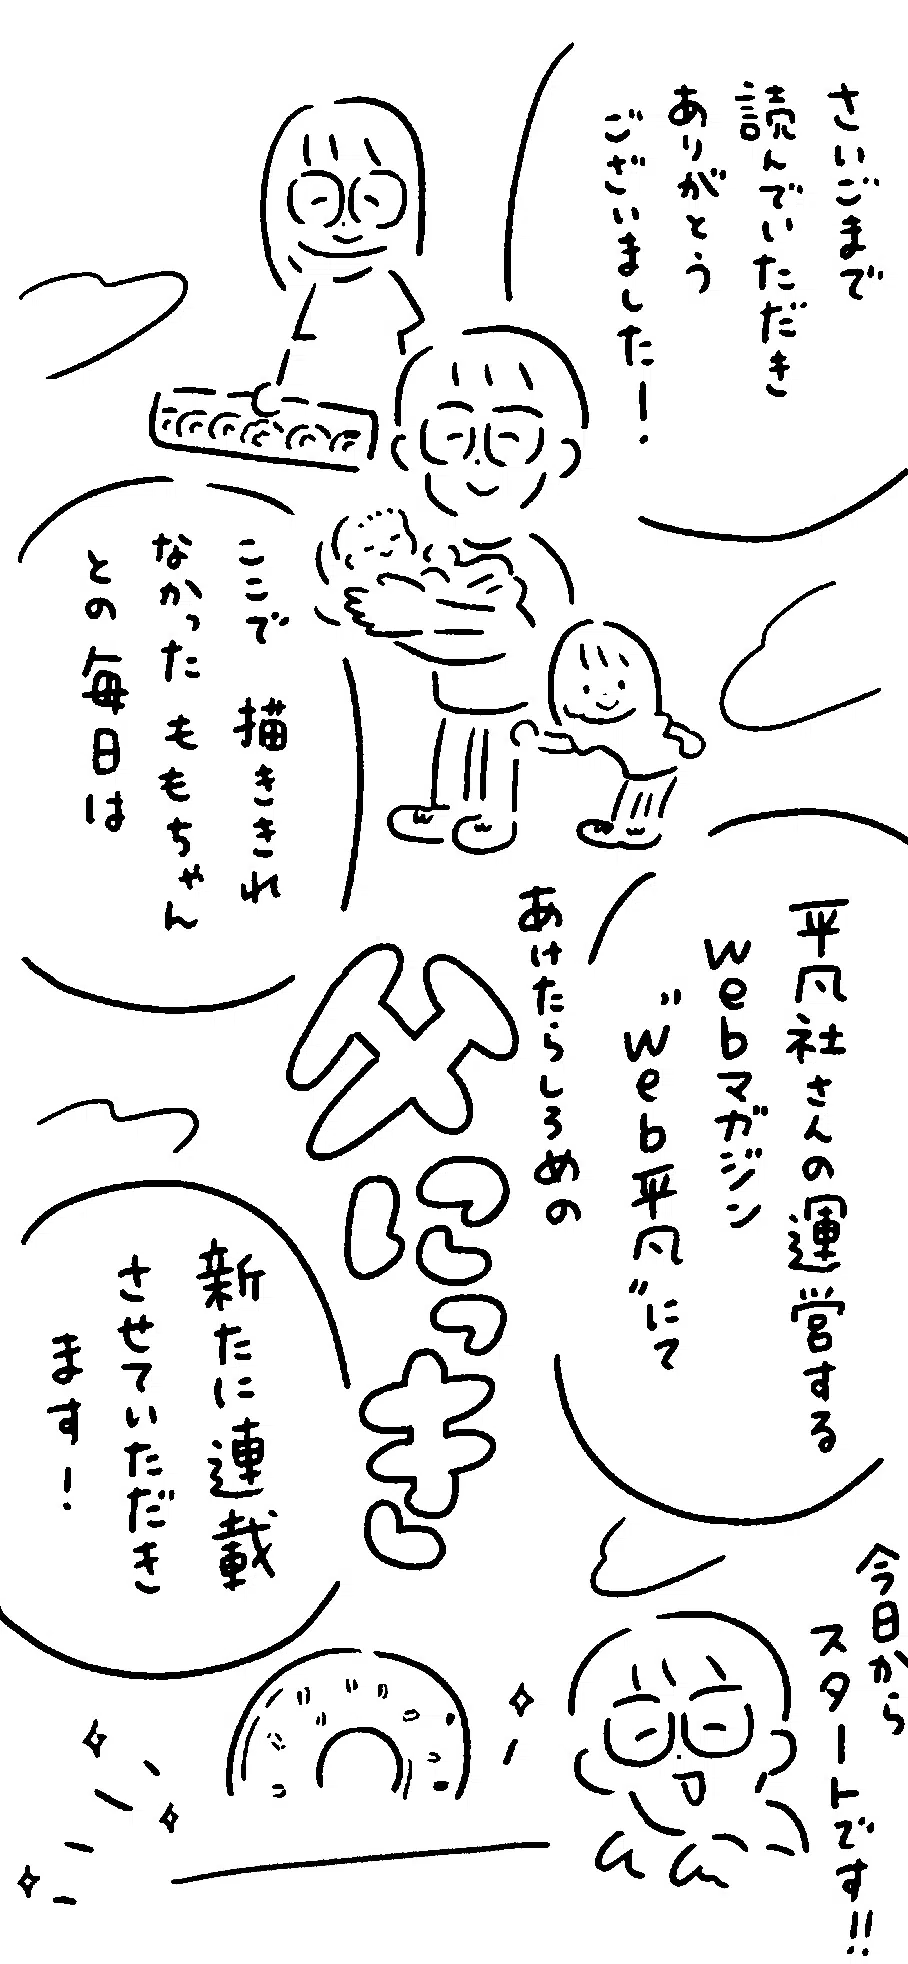 さいごまで
読んでいただき
ありがとう
ございました!
ここで 描ききれ
なかった ももちゃん
との毎日は
平凡社さんの運営する
webマガジン
"Web平凡"にて
あけたらしろめの
サにっき
新たに連載
させていただき
ます!
今日から
スタートです!!